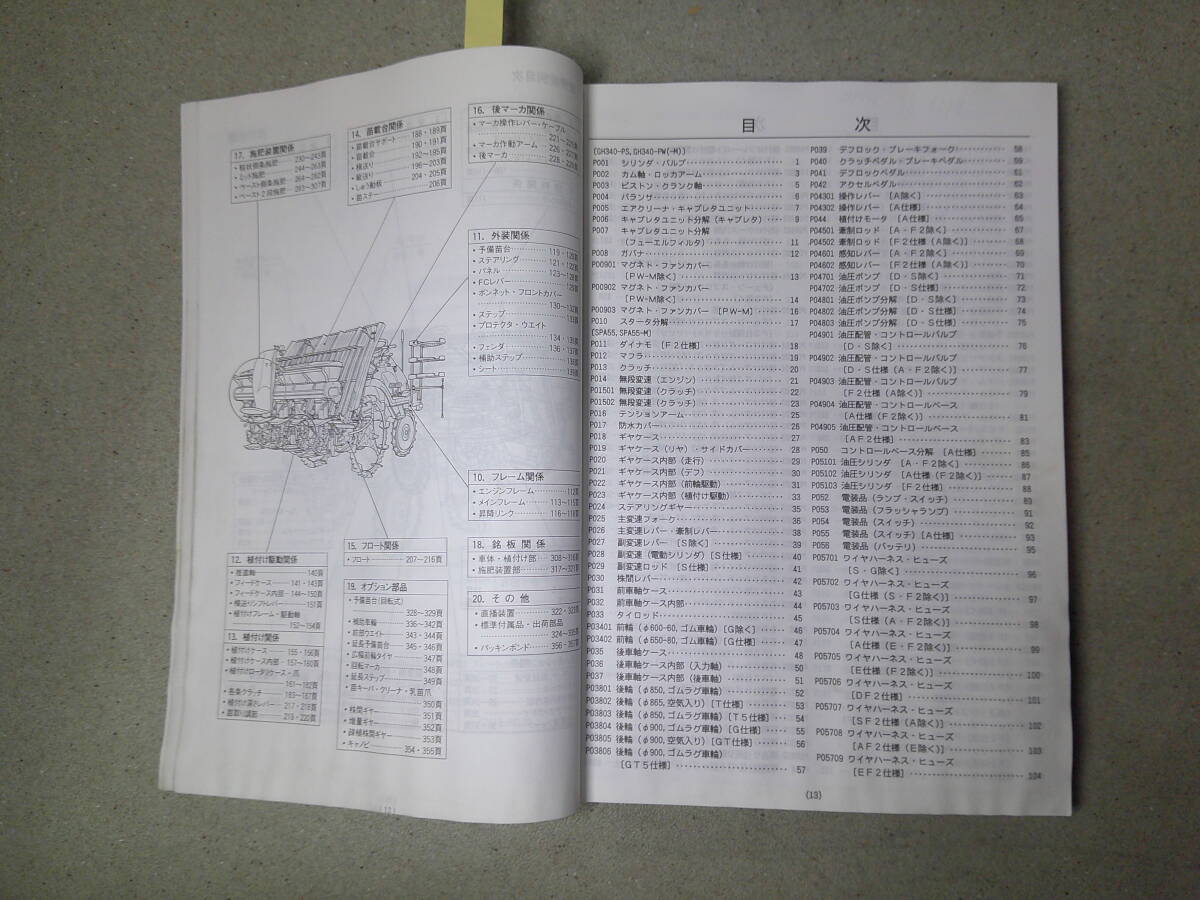 17. 施肥装置関係
・粒状側条施肥 230~243頁
・ミッド施肥 244~263頁
・ペースト側条施肥 264~282頁
・ペースト2段施肥 283~307頁
14. 苗載台関係
・苗載台サポート 188・189頁
・苗載台 190・191頁
・横送り 192~195頁
・縦送り 196~203頁
・しゅう動板 204・205頁
・苗ステー 206頁
16. 後マーカ関係
・マーカ操作レバー・ケーブル
221~225頁
・マーカ作動アーム 226・227頁
・後マーカ 228・229頁
11. 外装関係
・予備苗台 119・120頁
・ステアリング 121・122頁
・パネル 123~128頁
・FCレバー 129頁
・ボンネット・フロントカバー
130~132頁
・ステップ 133頁
・プロテクタ・ウエイト
134・135頁
・フェンダ 136・137頁
・補助ステップ 138頁
・シート 139頁
10. フレーム関係
・エンジンフレーム 112頁
・メインフレーム 113~115頁
・昇降リンク 116~118頁
18. 銘板関係
・車体・植付け部 308~316頁
・施肥装置部 317~321頁
20. その他
・直播装置 322・323頁
・標準付属品・出荷部品
324~335頁
・パッキンボンド 356・357頁
12. 植付け駆動関係
・推進軸 140頁
・フィードケース 141・143頁
・フィードケース内部 144~150頁
・横送りシフトレバー 151頁
・植付けフレーム・駆動軸
152~154頁
13. 植付け関係
・植付けケース 155・156頁
・植付けケース内部 157~160頁
・植付けロータリケース・爪
161~182頁
・各条クラッチ 183~187頁
・植付け深さレバー 217・218頁
・苗取り調節 219・220頁
15. フロート関係
・フロート 207~216頁
19. オプション部品
・予備苗台(回転式)
328~329頁
・補助車輪 336~342頁
・前部ウエイト 343・344頁
・延長予備苗台 345・346頁
・広幅前輪タイヤ 347頁
・回転マーカ 348頁
・延長ステップ 349頁
・苗キーパ・クリーナ・乳苗爪
350頁
・株間ギヤー 351頁
・増量ギヤー 352頁
・疎植株間ギヤー 353頁
・キャノピ 354・355頁
目次
(GH340-PS,GH340-PW(-M))
P001 シリンダ・バルブ 1
P002 カム軸・ロッカアーム 3
P003 ピストン・クランク軸 5
P004 バランサ 6
P005 エアクリーナ・キャブレタユニット 7
P006 キャブレタユニット分解(キャブレタ) 9
P007 キャブレタユニット分解
(フューエルフィルタ) 11
P008 ガバナ 12
P00901 マグネト・ファンカバー
[PW-M除く] 13
P00902 マグネト・ファンカバー
[PW-M除く] 14
P00903 マグネト・ファンカバー [PW-M] 16
P010 スタータ分解 17
(SPA55,SPA55-M)
P011 ダイナモ [F2仕様] 18
P012 マフラ 19
P013 クラッチ 20
P014 無段変速(エンジン) 21
P01501 無段変速(クラッチ) 22
P01502 無段変速(クラッチ) 23
P016 テンションアーム 25
P017 防水カバー 26
P018 ギヤケース 27
P019 ギヤケース(リヤ)・サイドカバー 28
P020 ギヤケース内部(走行) 29
P021 ギヤケース内部(デフ) 30
P022 ギヤケース内部(前輪駆動) 31
P023 ギヤケース内部(植付け駆動) 33
P024 ステアリングギヤー 35
P025 主変速フォーク 36
P026 主変速レバー・牽制レバー 38
P027 副変速レバー [S除く] 39
P028 副変速(電動シリンダ) [S仕様] 40
P029 副変速ロッド [S仕様] 41
P030 株間レバー 42
P031 前車軸ケース 43
P032 前車軸ケース内部 44
P033 タイロッド 45
P03401 前輪(φ600-60,ゴム車輪) [G除く] 46
P03402 前輪(φ650-80,ゴム車輪) [G仕様] 47
P035 後車軸ケース 48
P036 後車軸ケース内部(入力軸) 50
P037 後車軸ケース内部(後車軸) 51
P03801 後輪(φ850,ゴムラグ車輪) 52
P03802 後輪(φ865,空気入り) [T仕様] 53
P03803 後輪(φ850,ゴムラグ車輪) [T5仕様] 54
P03804 後輪(φ900,ゴムラグ車輪) [G仕様] 55
P03805 後輪(φ900,空気入り) [GT仕様] 56
P03806 後輪(φ900,ゴムラグ車輪)
[GT5仕様] 57
P039 デフロック・ブレーキフォーク 58
P040 クラッチペダル・ブレーキペダル 59
P041 デフロックペダル 61
P042 アクセルペダル 62
P04301 操作レバー [A除く] 63
P04302 操作レバー [A仕様] 64
P044 植付けモータ [A仕様] 65
P04501 牽制ロッド [A・F2除く] 67
P04502 牽制ロッド [F2仕様(A除く)] 68
P04601 感知レバー [A・F2除く] 69
P04602 感知レバー [F2仕様(A除く)] 70
P04701 油圧ポンプ [D・S除く] 71
P04702 油圧ポンプ [D・S仕様] 72
P04801 油圧ポンプ分解 [D・S除く] 73
P04802 油圧ポンプ分解 [D・S仕様] 74
P04803 油圧ポンプ分解 [D・S仕様] 75
P04901 油圧配管・コントロールバルブ
[D・S除く] 76
P04902 油圧配管・コントロールバルブ
[D・S仕様(A・F2除く)] 77
P04903 油圧配管・コントロールバルブ
[F2仕様(A除く)] 79
P04904 油圧配管・コントロールベース
[A仕様(F2除く)] 81
P04905 油圧配管・コントロールベース
[AF2仕様] 83
P050 コントロールベース分解 [A仕様] 85
P05101 油圧シリンダ [A・F2除く] 86
P05102 油圧シリンダ [A仕様(F2除く)] 87
P05103 油圧シリンダ [F2仕様] 88
P052 電装品(ランプ・スイッチ) 89
P053 電装品(フラッシャランプ) 91
P054 電装品(スイッチ) 92
P055 電装品(スイッチ) [A仕様] 93
P056 電装品(バッテリ) 95
P05701 ワイヤハーネス・ヒューズ
[S・G除く] 96
P05702 ワイヤハーネス・ヒューズ
[G仕様(S・F2除く)] 97
P05703 ワイヤハーネス・ヒューズ
[S仕様(A・F2除く)] 98
P05704 ワイヤハーネス・ヒューズ
[A仕様(E・F2除く)] 99
P05705 ワイヤハーネス・ヒューズ
[E仕様(F2除く)] 100
P05706 ワイヤハーネス・ヒューズ
[DF2仕様] 101
P05707 ワイヤハーネス・ヒューズ
[SF2仕様(A除く)] 102
P05708 ワイヤハーネス・ヒューズ
[AF2仕様(E除く)] 103
P05709 ワイヤハーネス・ヒューズ
[EF2仕様] 104
(13)